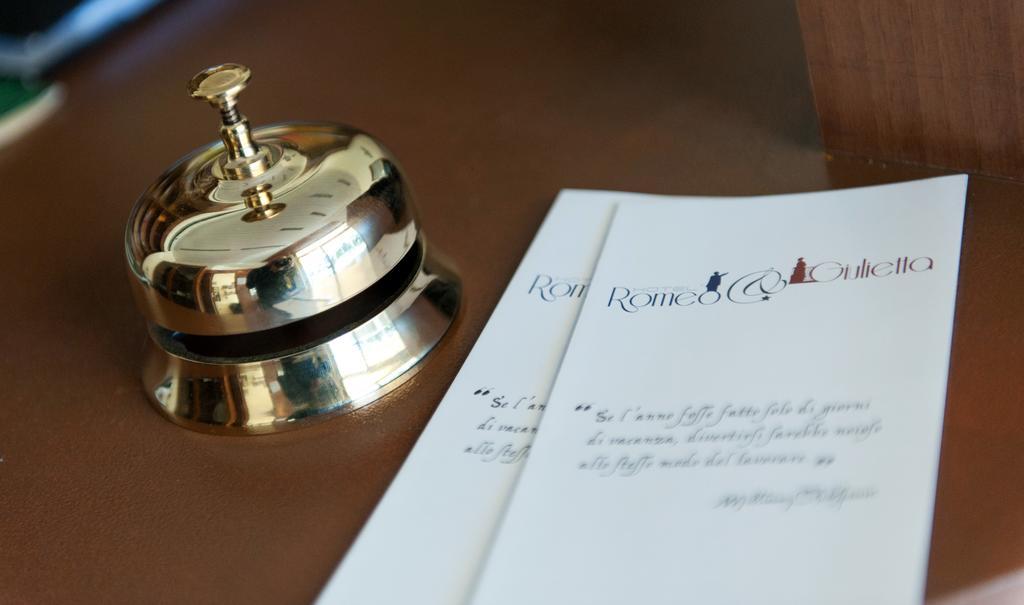 HOTEL
Romeo & Giulietta
Rom
“ Se l'anno foſſe fatto ſolo di giorni
di vacanza, divertirſi ſarebbe noioſo
allo ſteſſo modo del lavorare. ”
“ Se l'an
di vacan
allo ſteſſ